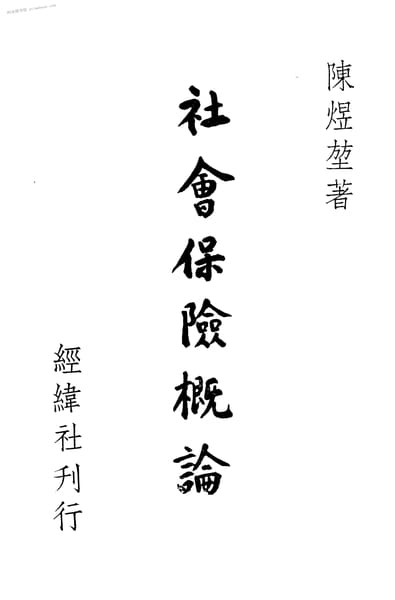 陳煜堃著
社會保險概論
經緯社刊行